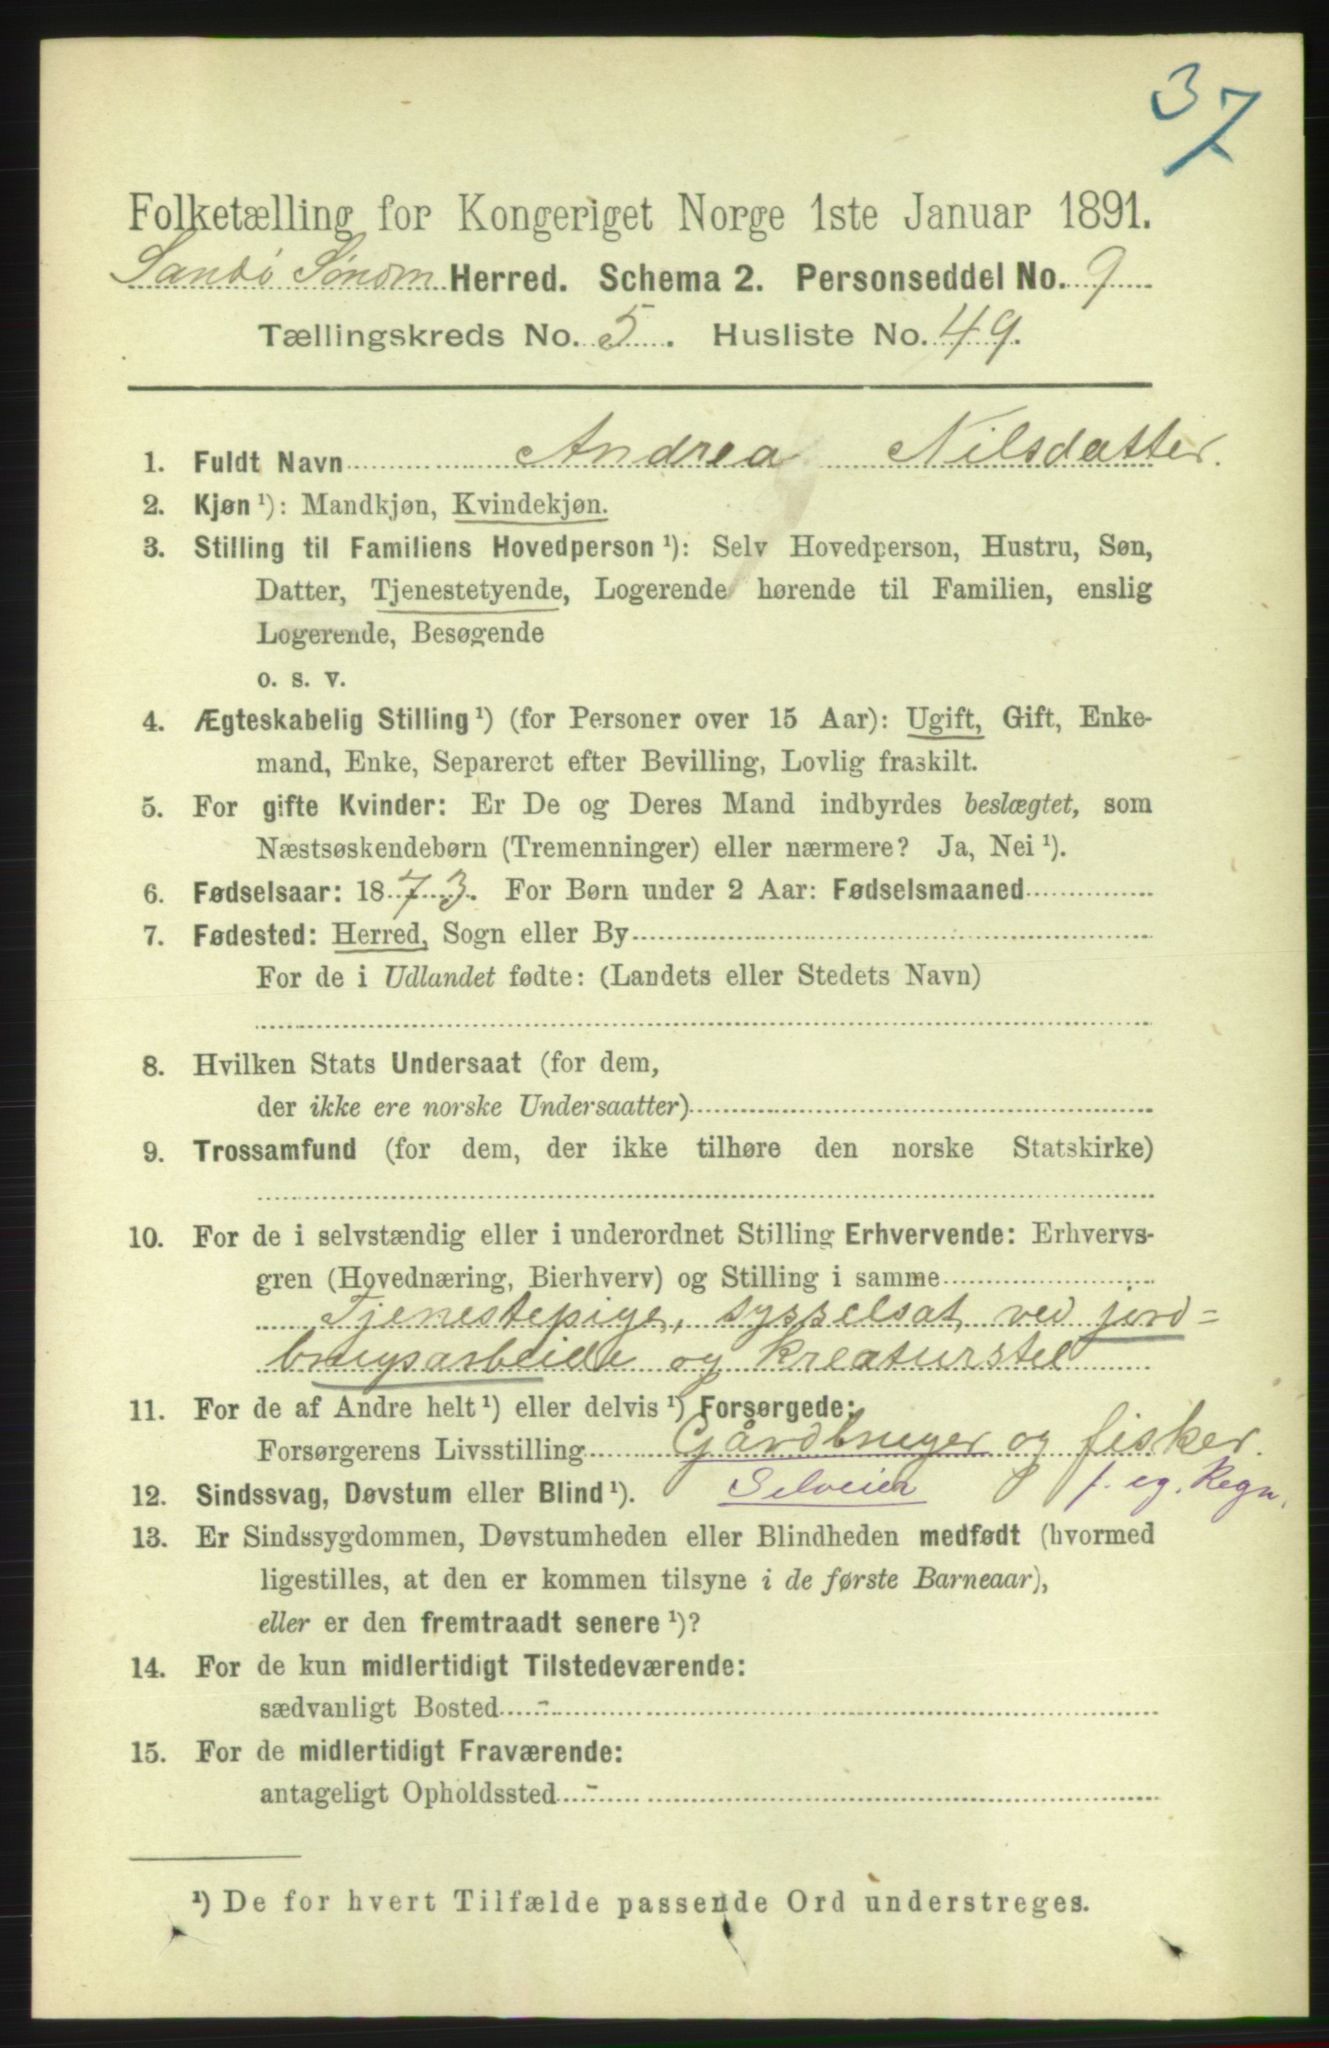 37
Folketælling for Kongeriget Norge 1ste Januar 1891.
Sandø Søndm Herred. Schema 2. Personseddel No. 9
Tællingskreds No. 5. Husliste No. 49.
1. Fuldt Navn Andrea Nilsdatter.
2. Kjøn ¹): Mandkjøn, Kvindekjøn.
3. Stilling til Familiens Hovedperson ¹): Selv Hovedperson, Hustru, Søn,
Datter, Tjenestetyende, Logerende hørende til Familien, enslig
Logerende, Besøgende
o. s. v.
4. Ægteskabelig Stilling ¹) (for Personer over 15 Aar): Ugift, Gift, Enke-
mand, Enke, Separeret efter Bevilling, Lovlig fraskilt.
5. For gifte Kvinder: Er De og Deres Mand indbyrdes beslægtet, som
Næstsøskendebørn (Tremenninger) eller nærmere? Ja, Nei ¹).
6. Fødselsaar: 1873. For Børn under 2 Aar: Fødselsmaaned
7. Fødested: Herred, Sogn eller By
For de i Udlandet fødte: (Landets eller Stedets Navn)
8. Hvilken Stats Undersaat (for dem,
der ikke ere norske Undersaatter)
9. Trossamfund (for dem, der ikke tilhøre den norske Statskirke)
10. For de i selvstændig eller i underordnet Stilling Erhvervende: Erhvervs-
gren (Hovednæring, Bierhverv) og Stilling i samme
Tjenestepige, sysselsat ved jord=
brugsarbeide og kreaturstel
11. For de af Andre helt ¹) eller delvis ¹) Forsørgede:
Forsørgerens Livsstilling Gårdbruger og fisker.
12. Sindssvag, Døvstum eller Blind ¹). Selveier f. eg. Regn.
13. Er Sindssygdommen, Døvstumheden eller Blindheden medfødt (hvormed
ligestilles, at den er kommen tilsyne i de første Barneaar),
eller er den fremtraadt senere ¹)?
14. For de kun midlertidigt Tilstedeværende:
sædvanligt Bosted -
15. For de midlertidigt Fraværende:
antageligt Opholdssted -
¹) De for hvert Tilfælde passende Ord understreges.